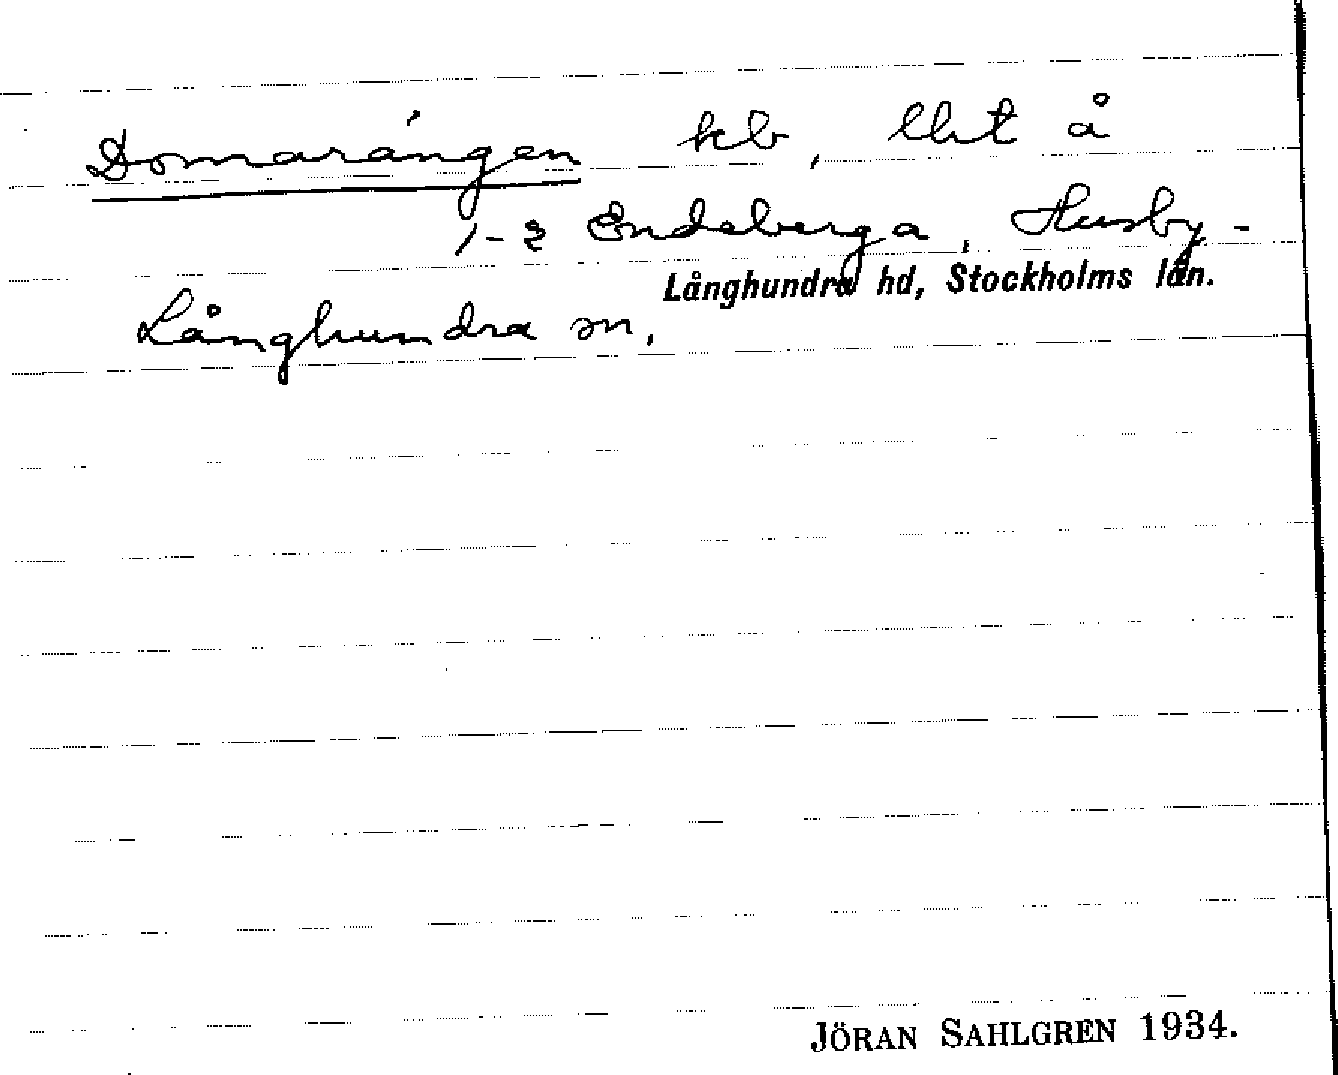 Domarängen kb, lht å
1-2 Endeberga, Husby-
Långhundra hd, Stockholms län.
Långhundra sn.
JÖRAN SAHLGREN 1934.